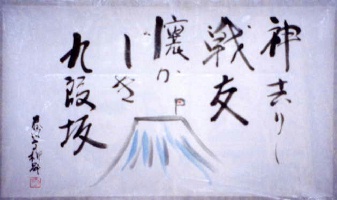 神去りし
戦友
懐か
しき
九段坂